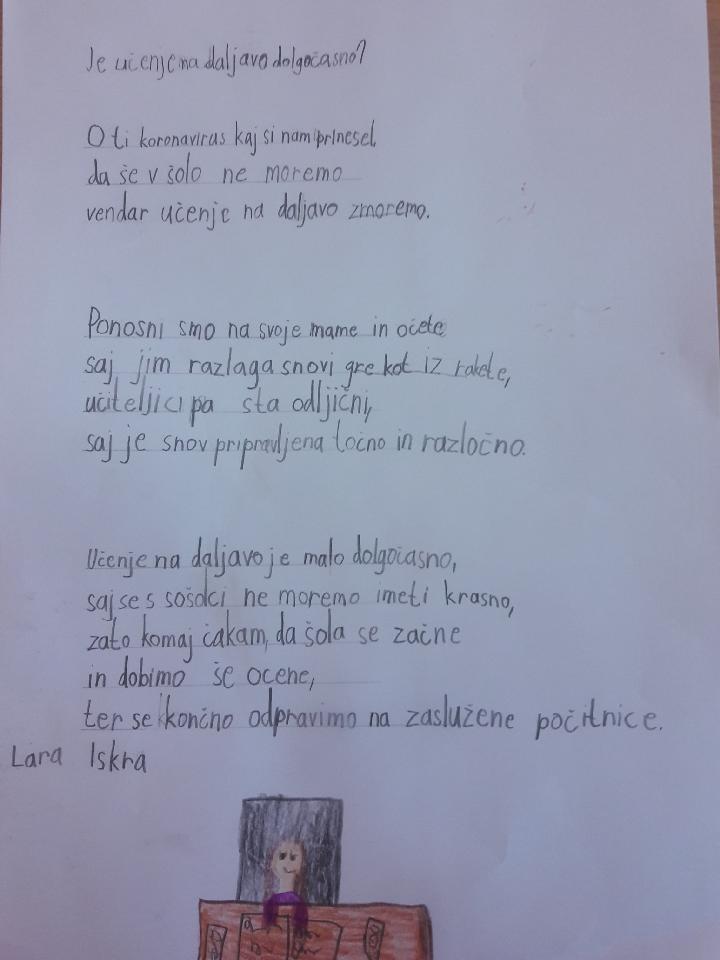 Je učenje na daljavo dolgočasno?
O ti koronavirus kaj si nam prinesel,
da še v šolo ne moremo
vendar učenje na daljavo zmoremo.
Ponosni smo na svoje mame in očete
saj jim razlaga snovi gre kot iz rakete,
učiteljici pa sta odljični,
saj je snov pripravljena točno in razločno.
Učenje na daljavo je malo dolgočasno,
saj se s sošolci ne moremo imeti krasno,
zato komaj čakam, da šola se začne
in dobimo še ocene,
ter se končno odpravimo na zaslužene počitnice.
Lara Iskra